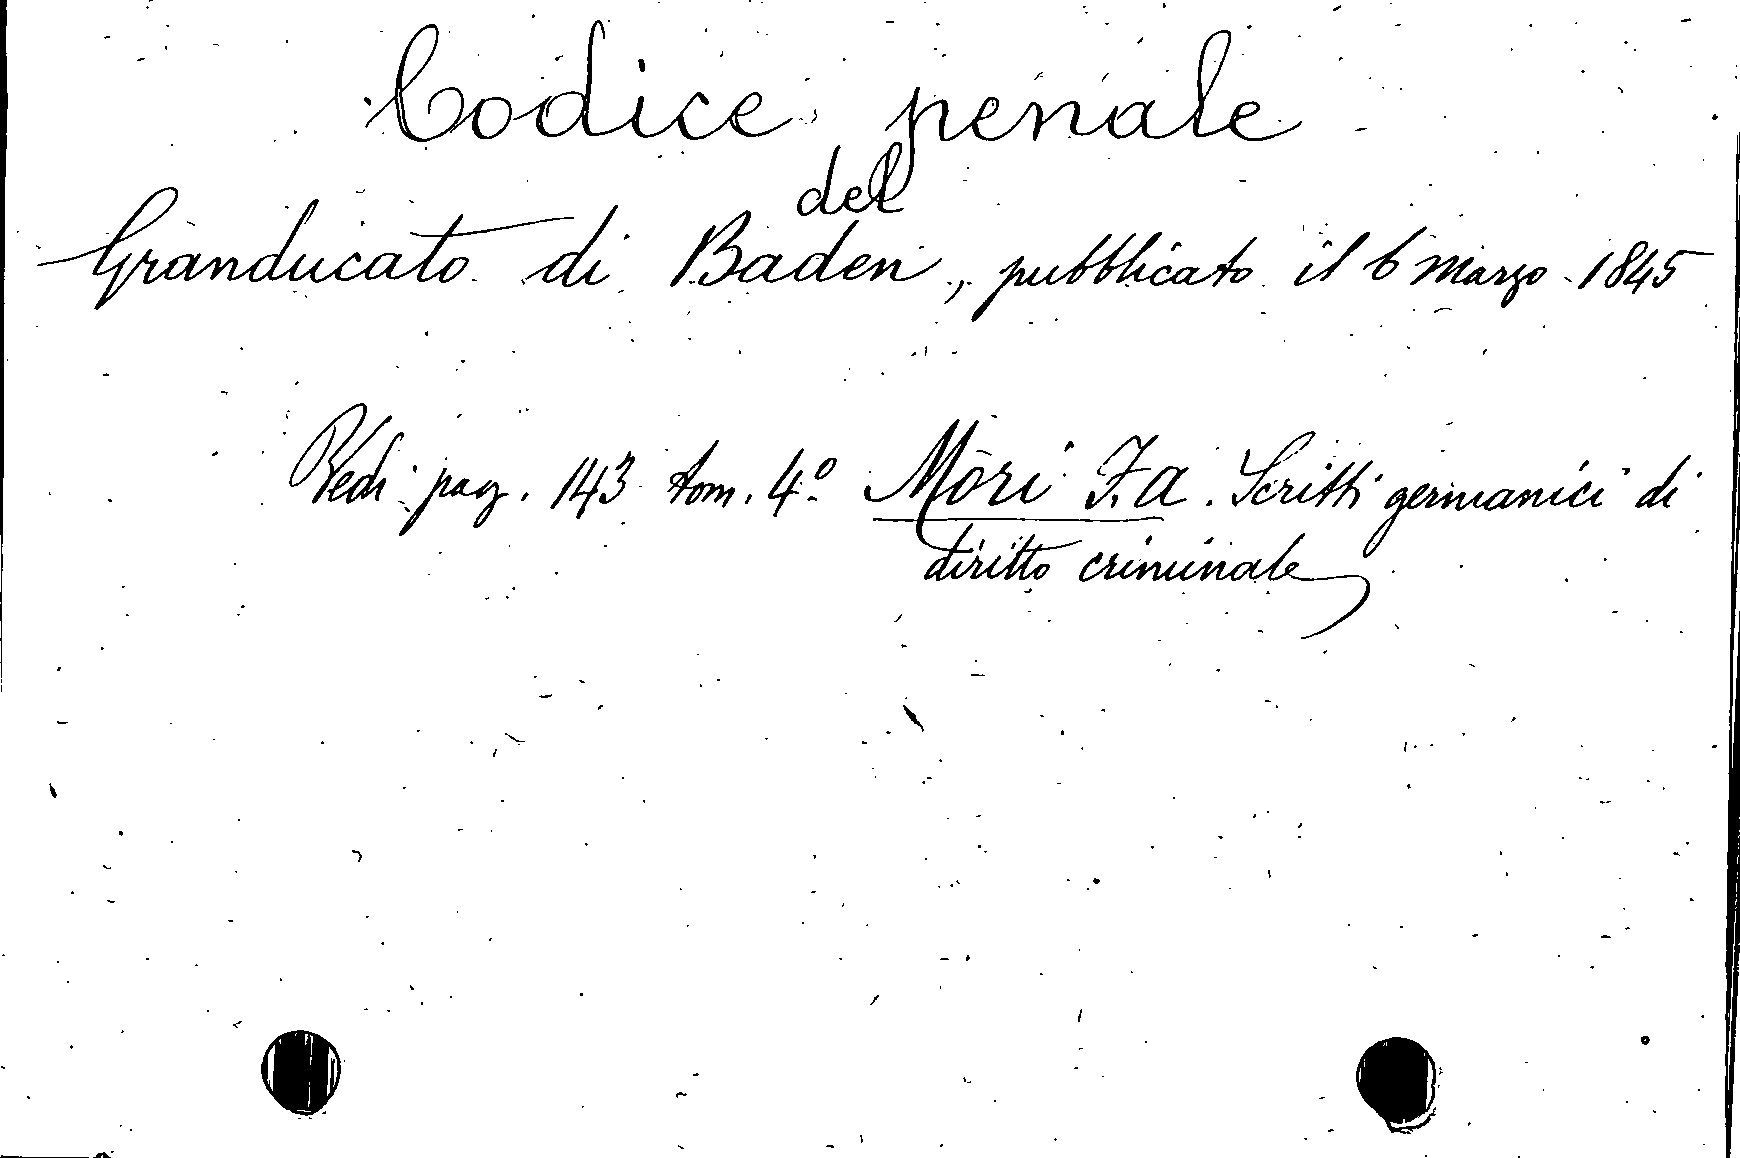 Codice penale
del
Granducato di Baden, pubblicato il 6 Marzo 1845
Vedi pag. 143 tom. 4º Mori F. A. Scritti germanici di
diritto criminale